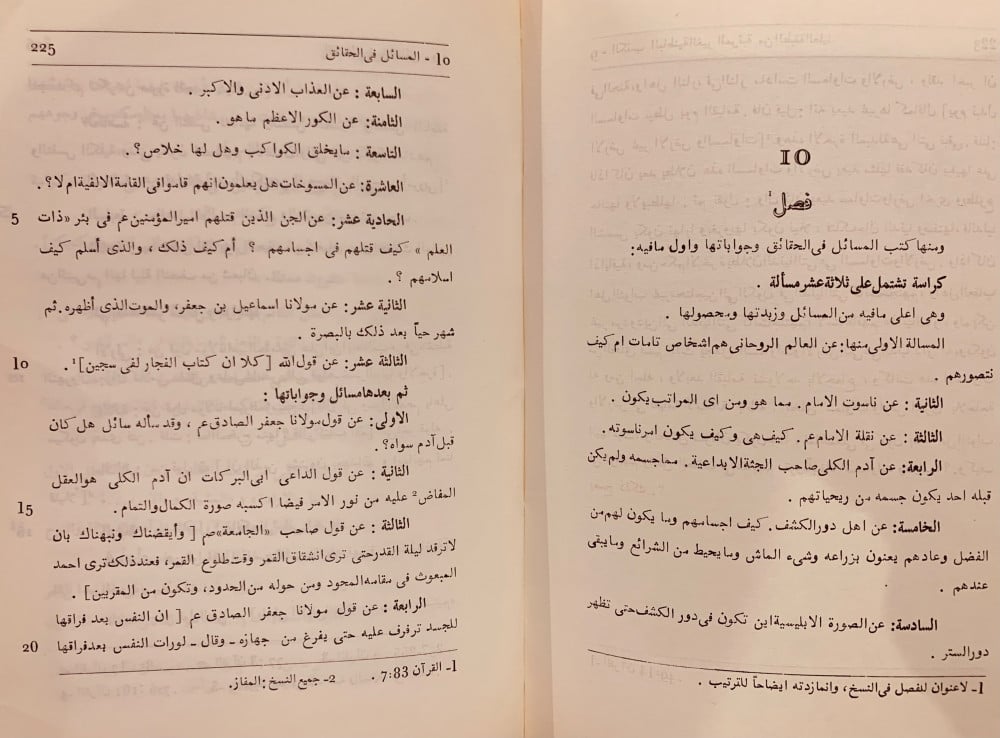 10
فصل¹
ومنها كتب المسائل فى الحقائق وجواباتها واول مافيه:
كراسة تشتمل على ثلاثة عشر مسألة .
وهى اعلى مافيه من المسائل وزبدتها ومحصولها .
المسالة الاولى منها: عن العالم الروحانى هم اشخاص تامات ام كيف
نتصورهم .
الثانية : عن ناسوت الامام . مما هو ومن اى المراتب يكون .
الثالثة : عن نقلة الامام عم . كيف هى وكيف يكون امر ناسوته .
الرابعة: عن آدم الكلى صاحب الجثة الابداعية . مما جسمه ولم يكن
قبله احد يكون جسمه من ريحياتهم .
الخامسة: عن اهل دور الكشف . كيف اجسامهم وما يكون لهم من
الفضل وعادهم يعنون بزراعه وشىء الماش وما يحيط من الشرائع وما يبقى
عندهم .
السادسة: عن الصورة الابليسية اين تكون فى دور الكشف حتى تظهر
دور الستر .
1- لا عنوان للفصل فى النسخ، وانما زدته ايضاحاً للترتيب .
10 - المسائل فى الحقائق
225
السابعة : عن العذاب الادنى والاكبر .
الثامنة: عن الكور الاعظم ما هو .
التاسعة : ما يخلق الكواكب وهل لها خلاص؟ .
العاشرة: عن المسوخات هل يعلمون انهم قاموا فى القامة الالفية ام لا؟ .
الحادية عشر: عن الجن الذين قتلهم امير المؤمنين عم فى بئر «ذات 5
العلم » كيف قتلهم فى اجسامهم ؟ أم كيف ذلك ، والذى أسلم كيف
اسلامهم ؟ .
الثانية عشر: عن مولانا اسماعيل بن جعفر، والموت الذى أظهره. ثم
شهر حياً بعد ذلك بالبصرة .
الثالثة عشر: عن قول الله [كلا ان كتاب الفجار لفى سجين]¹ . 10
ثم بعدها مسائل وجواباتها :
الاولى: عن قول مولانا جعفر الصادق عم ، وقد سأله سائل هل كان
قبل آدم سواه؟ .
الثانية : عن قول الداعى ابى البركات ان آدم الكلى هو العقل
المفاض² عليه من نور الامر فيضا اكسبه صورة الكمال والتمام . 15
الثالثة : عن قول صاحب «الجامعة» ص [ وأيقضناك ونبهناك بان
لا ترقد ليلة القدر حتى ترى انشقاق القمر وقت طلوع القمر، فعند ذلك ترى احمد
المبعوث فى مقامه المحود ومن حوله من الحدود، وتكون من المقربين] .
الرابعة : عن قول مولانا جعفر الصادق عم [ ان النفس بعد فراقها
للجسد ترفرف عليه حتى يفرغ من جهازه ـ وقال ـ لورات النفس بعد فراقها 20
1- القرآن 7:83 . 2- جميع النسخ: المفاز.